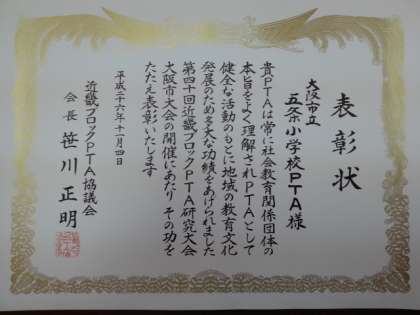 表彰状
大阪市立
五条小学校PTA様
貴PTAは常に社会教育関係団体の
本旨をよく理解されPTAとして
健全な活動のもとに地域の教育文化
発展のため多大な功績をあげられました
第四十回近畿ブロックPTA研究大会
大阪市大会の開催にあたり その功を
たたえ表彰いたします
平成二十六年十一月四日
近畿ブロックPTA協議会
会長 笹川正明